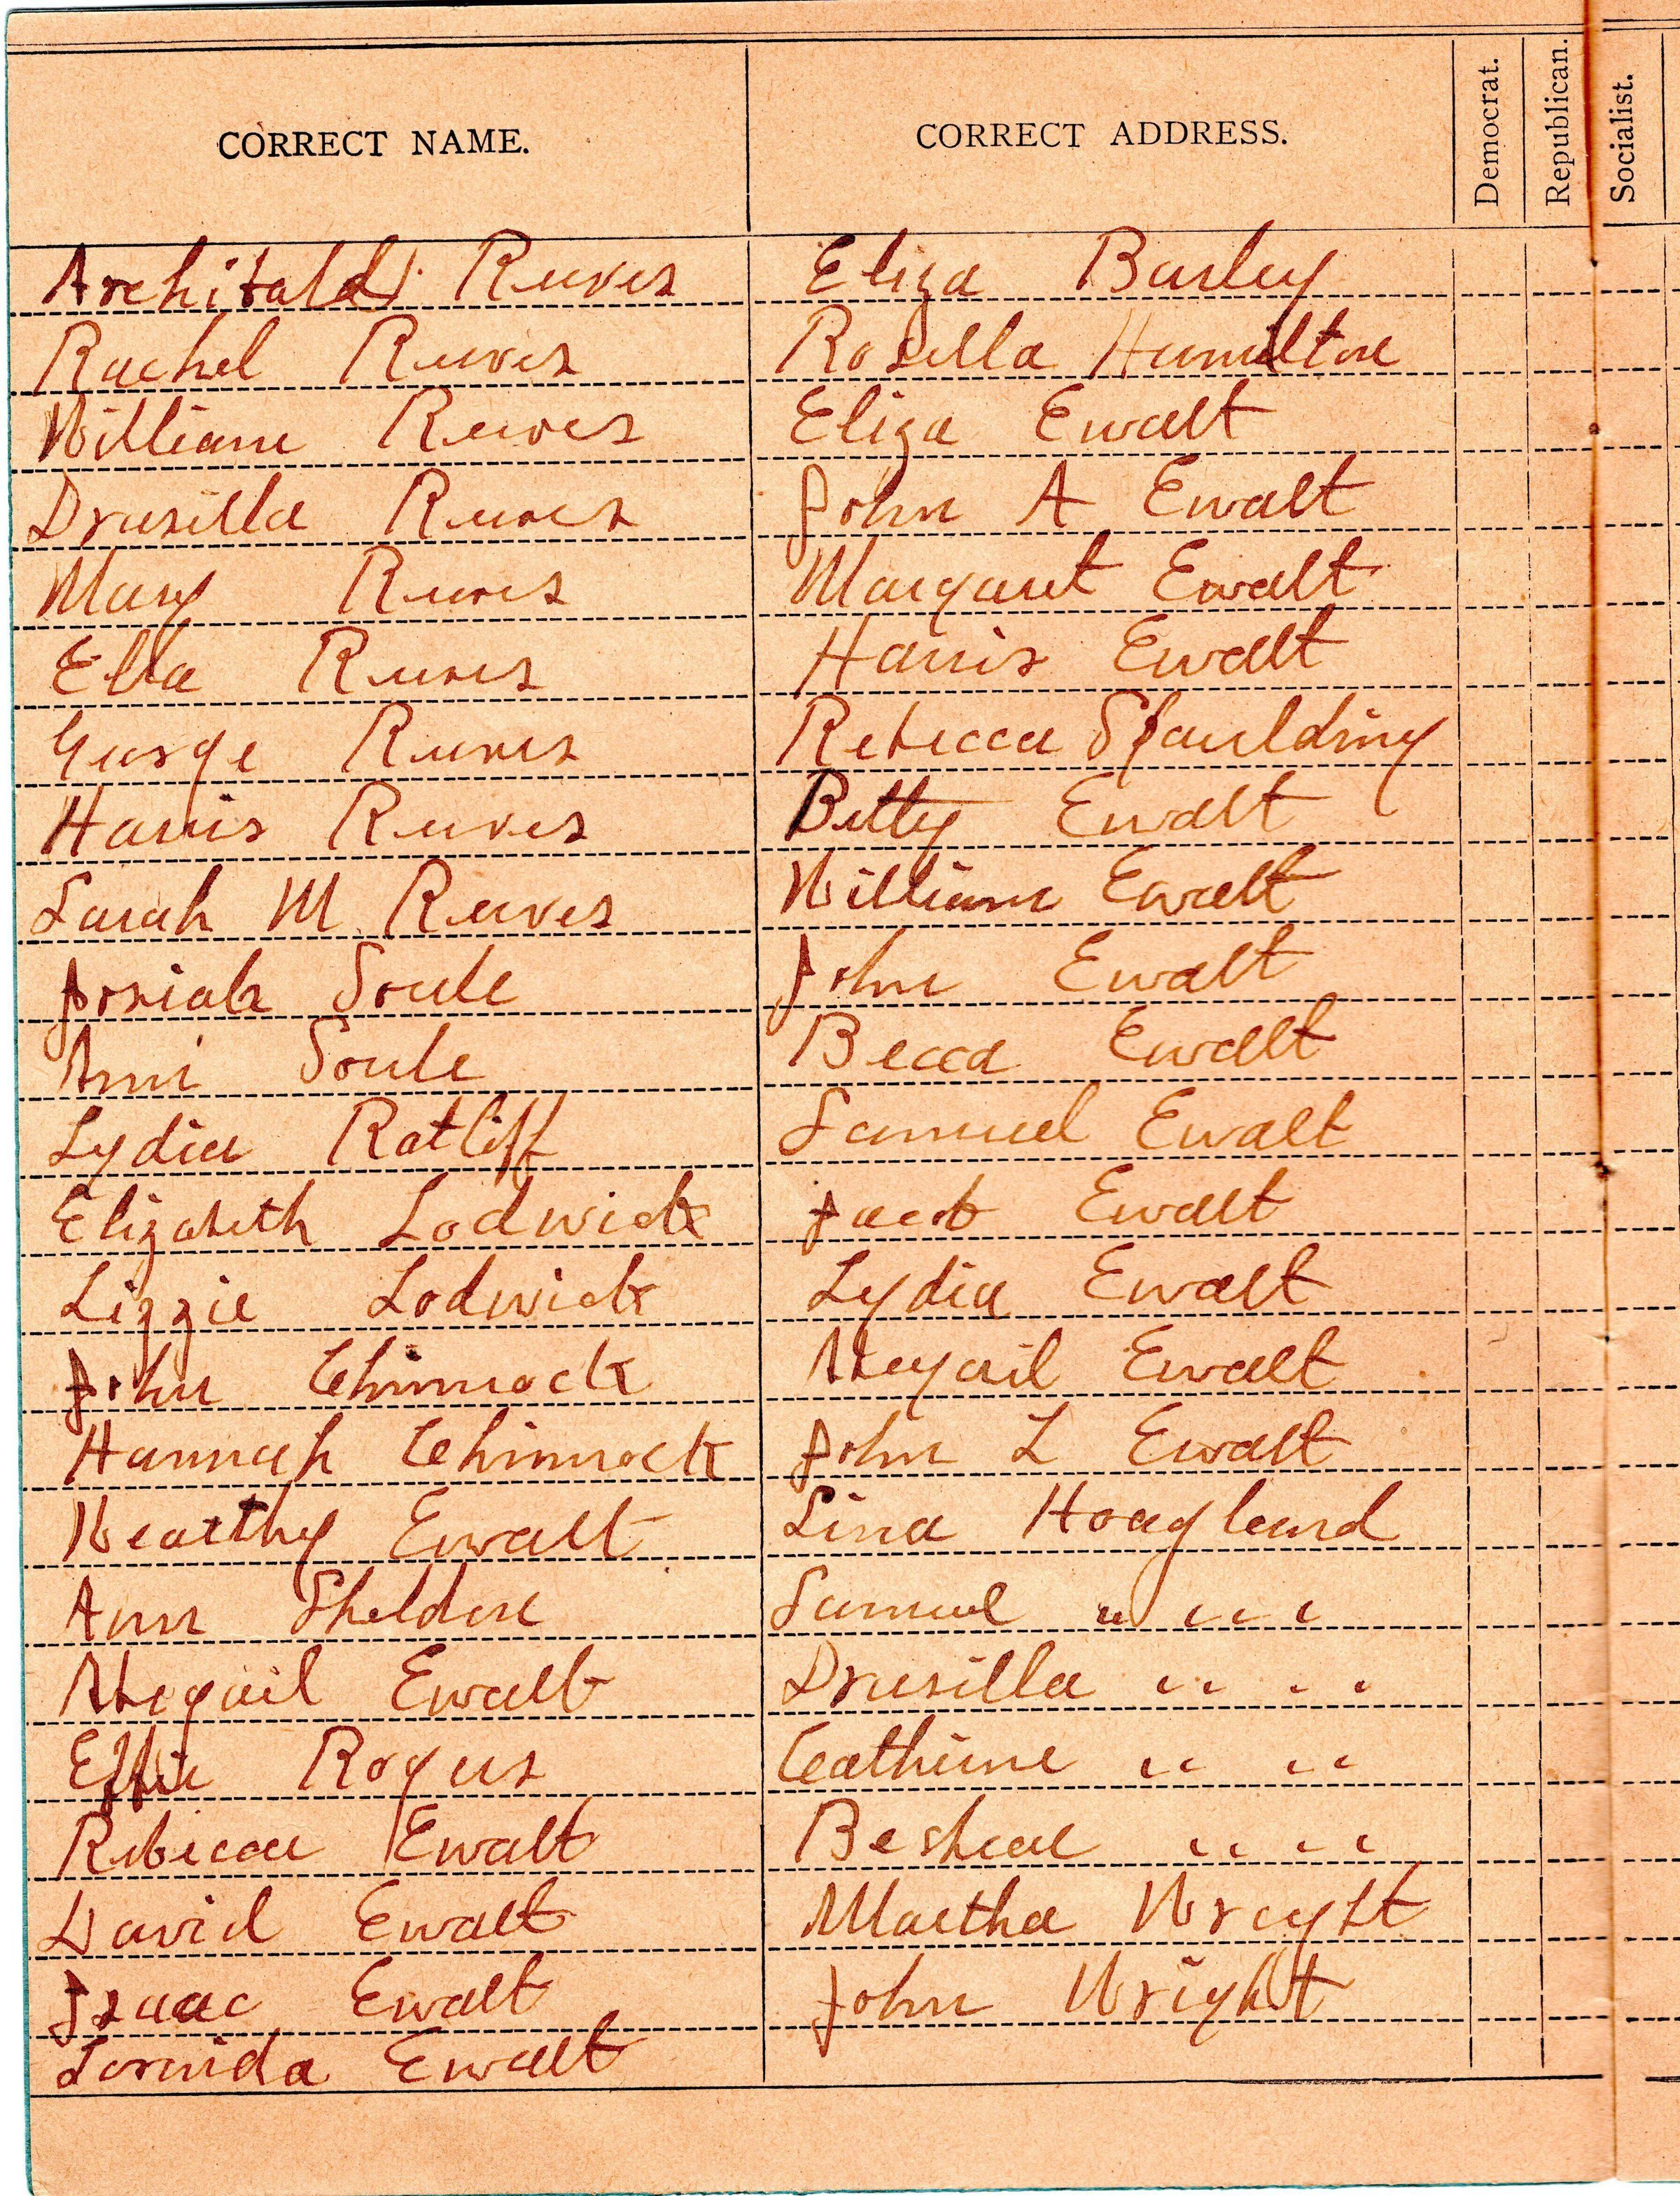 CORRECT NAME. CORRECT ADDRESS. Democrat. Republican. Socialist.
Archibald Reeves Eliza Barley
Rachel Reeves Rosella Hamilton
William Reeves Eliza Ewalt
Drusilla Reeves John A Ewalt
Mary Reeves Margaret Ewalt
Ella Reeves Harris Ewalt
George Reeves Rebecca Spaulding
Harris Reeves Betty Ewalt
Sarah M Reeves William Ewalt
Josiah Soule John Ewalt
Ami Soule Becca Ewalt
Lydia Ratliff Samuel Ewalt
Elizabeth Lodwick Jacob Ewalt
Lizzie Lodwick Lydia Ewalt
John Chinnock Abegail Ewalt
Hannah Chinnock John L Ewalt
Ewalt Lina Hoagland
Ann Sheldon Samuel " "
Abegail Ewalt Drusilla " "
Effie Rogers Catherine " "
Rebecca Ewalt " "
David Ewalt Martha Wright
Isaac Ewalt John Wright
Ewalt